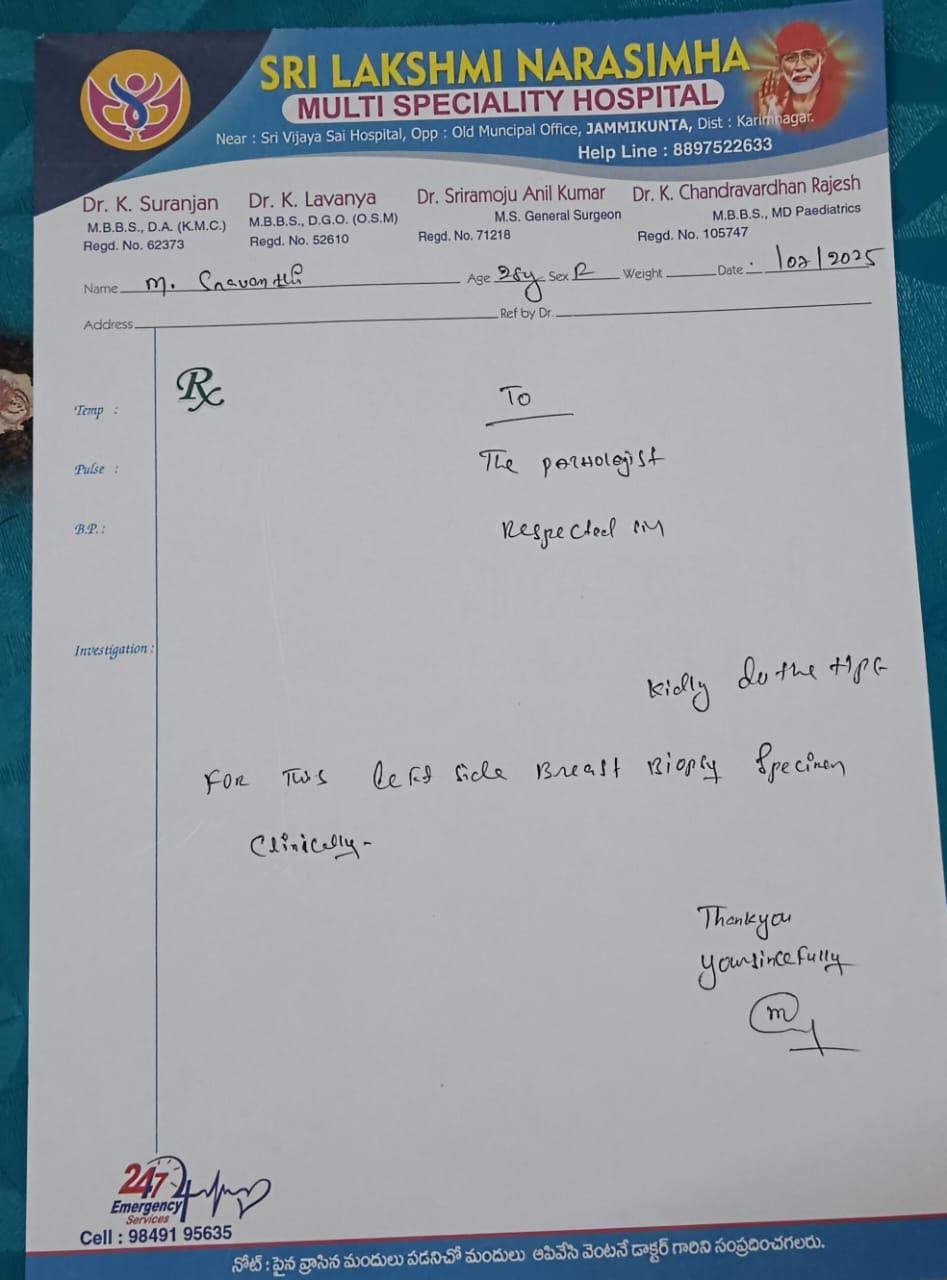 SRI LAKSHMI NARASIMHA
MULTI SPECIALITY HOSPITAL
Near : Sri Vijaya Sai Hospital, Opp : Old Muncipal Office, JAMMIKUNTA, Dist : Karimnagar.
Help Line : 8897522633
Dr. K. Suranjan Dr. K. Lavanya Dr. Sriramoju Anil Kumar Dr. K. Chandravardhan Rajesh
M.B.B.S., D.A. (K.M.C.) M.B.B.S., D.G.O. (O.S.M) M.S. General Surgeon M.B.B.S., MD Paediatrics
Regd. No. 62373 Regd. No. 52610 Regd. No. 71218 Regd. No. 105747
Name M. Sravanthi Age 28y Sex Weight Date : /02/2025
Address Ref by Dr.
Rx
To
Temp :
The pathologist
Pulse :
Respected
B.P. :
Investigation :
Kidly do the HPE
FOR This left side Breast Biopsy Specimen
Clinically-
Thankyou
yoursincefully
24/7
Emergency
Services
Cell : 98491 95635
నోట్ : పైన వ్రాసిన మందులు పడనిచో మందులు ఆపివేసి వెంటనే డాక్టర్ గారిని సంప్రదించగలరు.